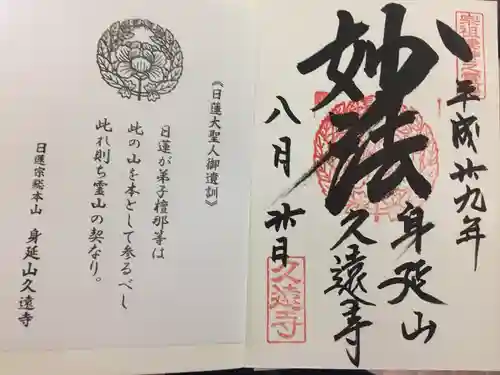 平成廿九年
身延山
妙法
久遠寺
八月廿日
久遠寺
《日蓮大聖人御遺訓》
日蓮が弟子檀那等は
此の山を本として参るべし
此れ則ち霊山の契なり。
日蓮宗総本山 身延山久遠寺